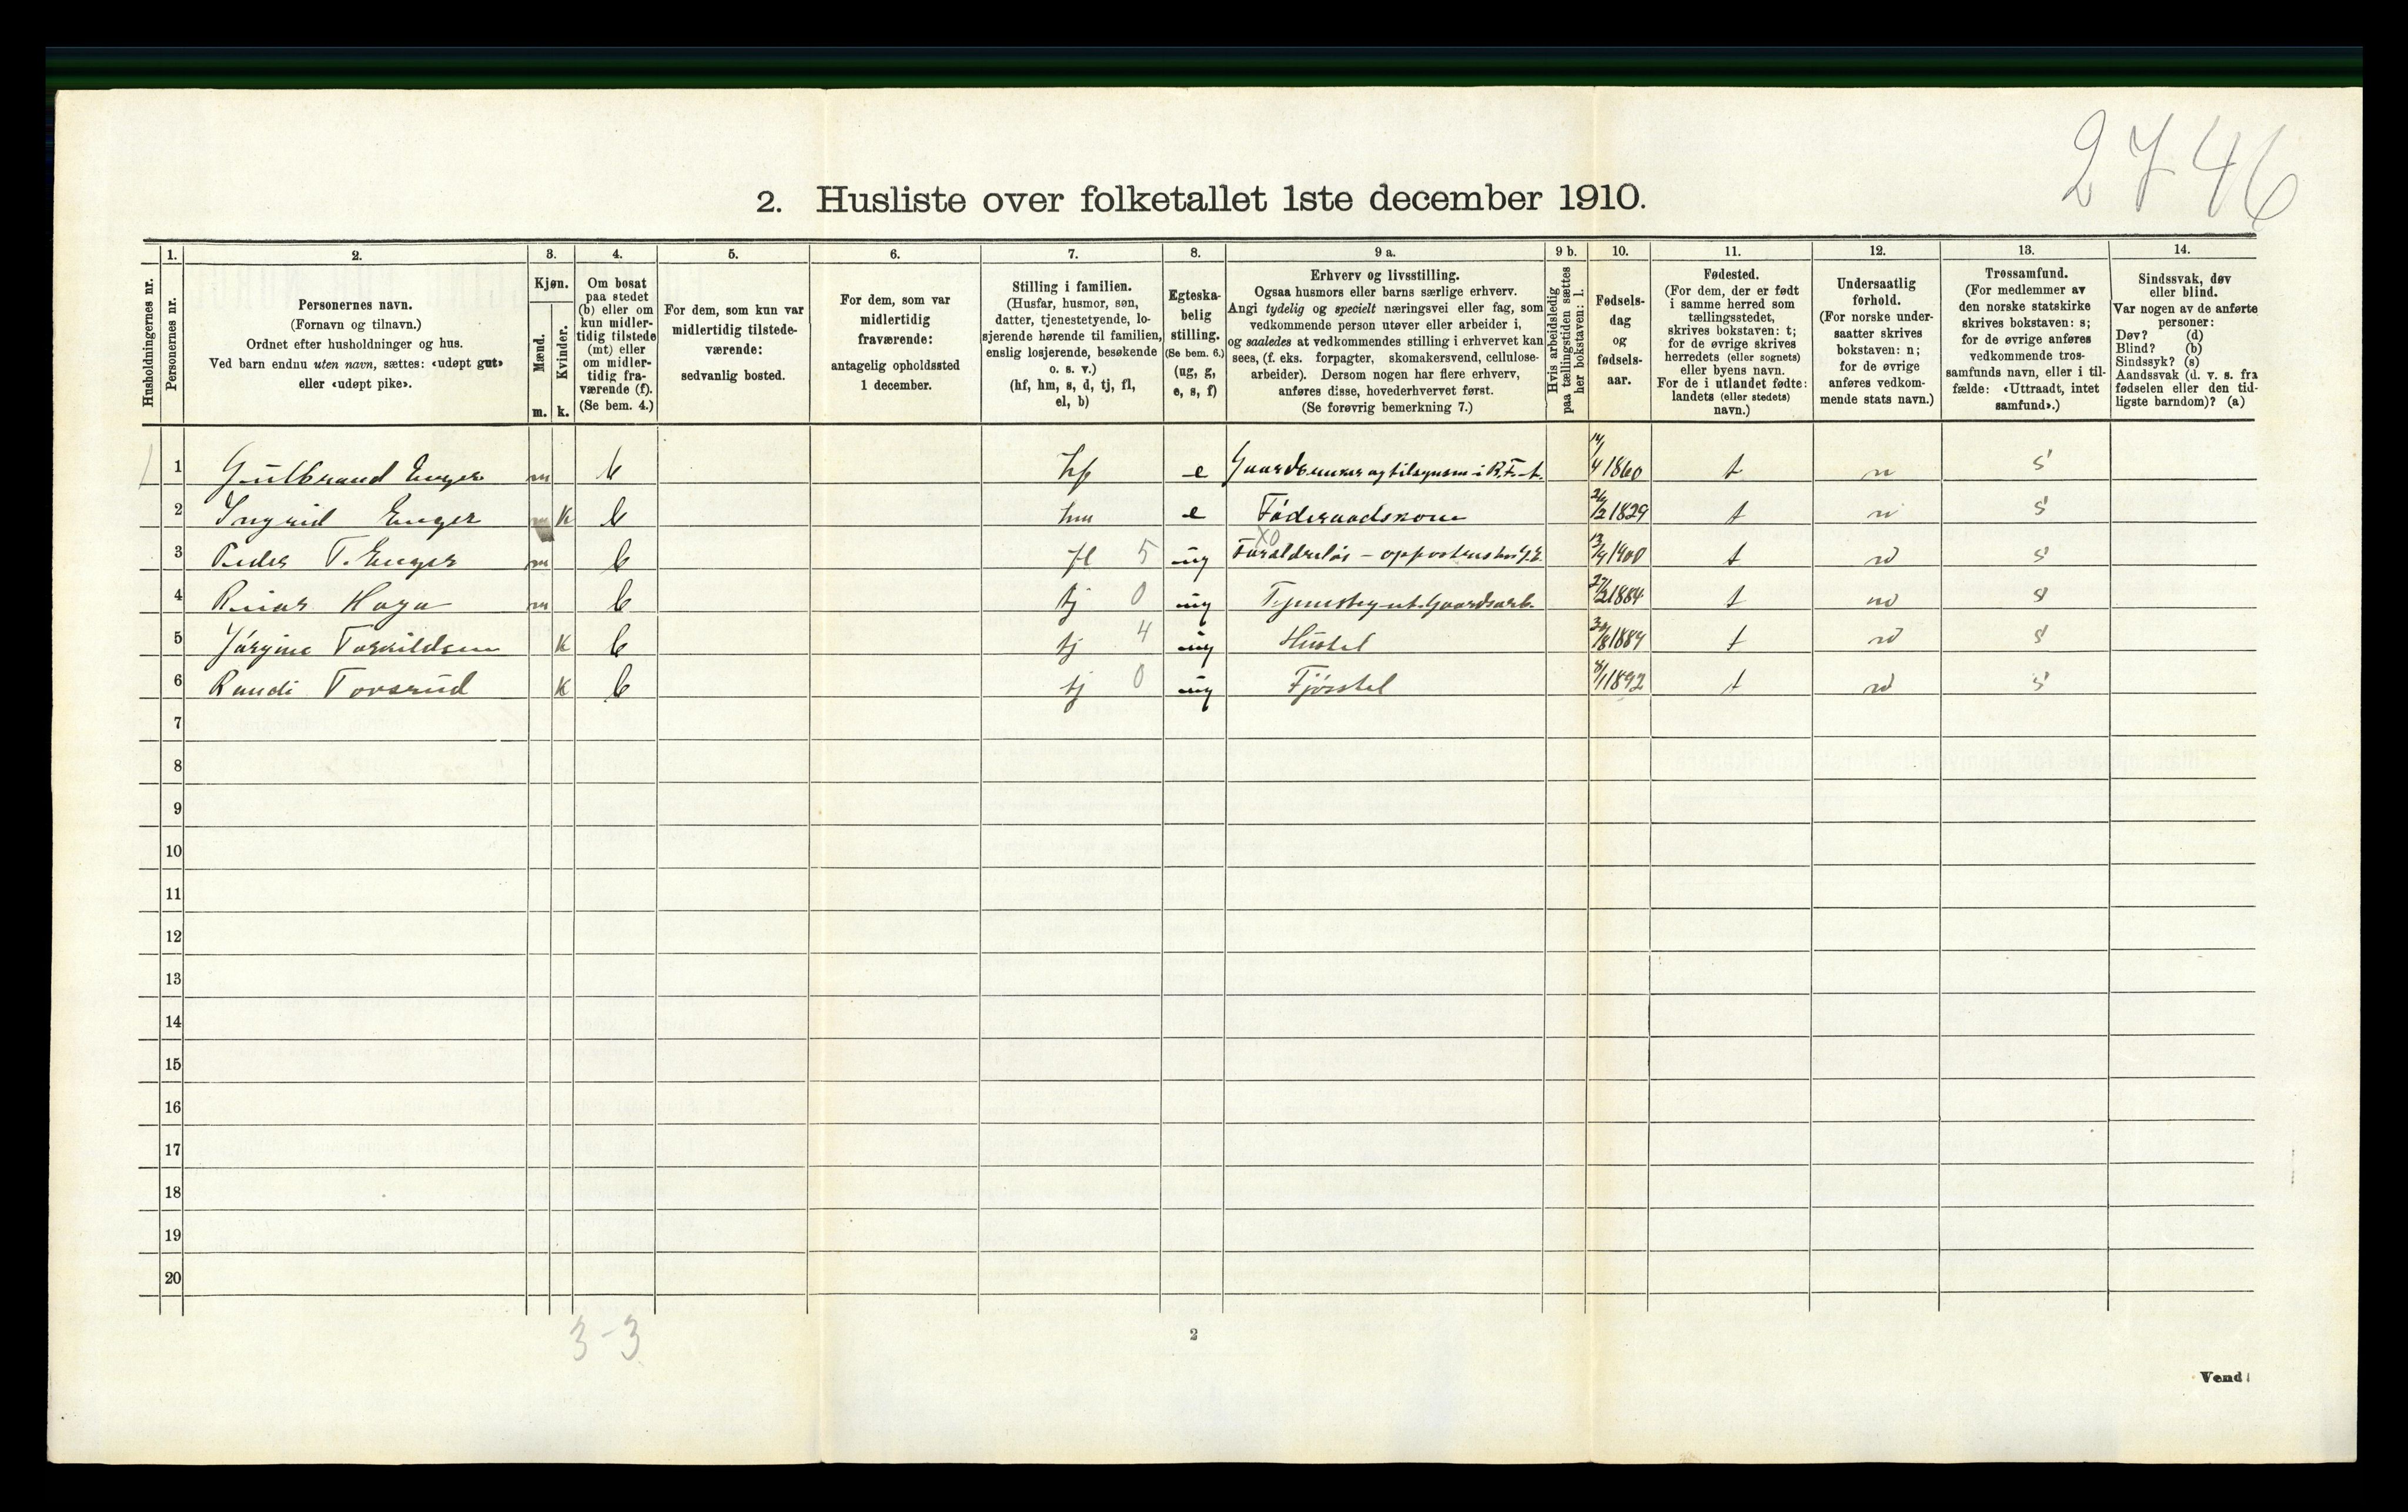 2746
2. Husliste over folketallet 1ste december 1910.
Husholdningernes nr.
1.
Personernes nr.
2.
Personernes navn.
(Fornavn og tilnavn.)
Ordnet efter husholdninger og hus.
Ved barn endnu uten navn, sættes: «udøpt gut»
eller «udøpt pike».
3.
Kjøn.
Mænd.
Kvinder.
m. k.
4.
Om bosat
paa stedet
(b) eller om
kun midler-
tidig tilstede
(mt) eller
om midler-
tidig fra-
værende (f).
(Se bem. 4.)
5.
For dem, som kun var
midlertidig tilstede-
værende:
sedvanlig bosted.
6.
For dem, som var
midlertidig
fraværende:
antagelig opholdssted
1 december.
7.
Stilling i familien.
(Husfar, husmor, søn,
datter, tjenestetyende, lo-
sjerende hørende til familien,
enslig losjerende, besøkende
o. s. v.)
(hf, hm, s, d, tj, fl,
el, b)
8.
Egteska-
belig
stilling.
(Se bem. 6.)
(ug, g,
e, s, f)
9 a.
Erhverv og livsstilling.
Ogsaa husmors eller barns særlige erhverv.
Angi tydelig og specielt næringsvei eller fag, som
vedkommende person utøver eller arbeider i,
og saaledes at vedkommendes stilling i erhvervet kan
sees, (f. eks. forpagter, skomakersvend, cellulose-
arbeider). Dersom nogen har flere erhverv,
anføres disse, hovederhvervet først.
(Se forøvrig bemerkning 7.)
9 b.
Hvis arbeidsledig
paa tællingstiden sættes
her bokstaven: l.
10.
Fødsels-
dag
og
fødsels-
aar.
11.
Fødested.
(For dem, der er født
i samme herred som
tællingsstedet,
skrives bokstaven: t;
for de øvrige skrives
herredets (eller sognets)
eller byens navn.
For de i utlandet fødte:
landets (eller stedets)
navn.)
12.
Undersaatlig
forhold.
(For norske under-
saatter skrives
bokstaven: n;
for de øvrige
anføres vedkom-
mende stats navn.)
13.
Trossamfund.
(For medlemmer av
den norske statskirke
skrives bokstaven: s;
for de øvrige anføres
vedkommende tros-
samfunds navn, eller i til-
fælde: «Uttraadt, intet
samfund».)
14.
Sindssvak, døv
eller blind.
Var nogen av de anførte
personer:
Døv? (d)
Blind? (b)
Sindssyk? (s)
Aandssvak (d. v. s. fra
fødselen eller den tid-
ligste barndom)? (a)
1 1 Gulbrand Enger m b hf e 14/4 1860 t n s
2 Ingrid Enger k b hm e Føderaadskone 1829 t n s
3 Peder T. Enger m b fl 5 ug Forældreløs – 1900 t n s
xo
4 Haga m b tj 0 ug 27/2 1884 t n s
5 Jørgine Torkildsen k b tj 4 ug Hustel t n s
6 Randi Tovsrud k b tj 0 ug Fjøsstel 8/1 1892 t n s
7
8
9
10
11
12
13
14
15
16
17
18
19
20
3-3
2
Vend!